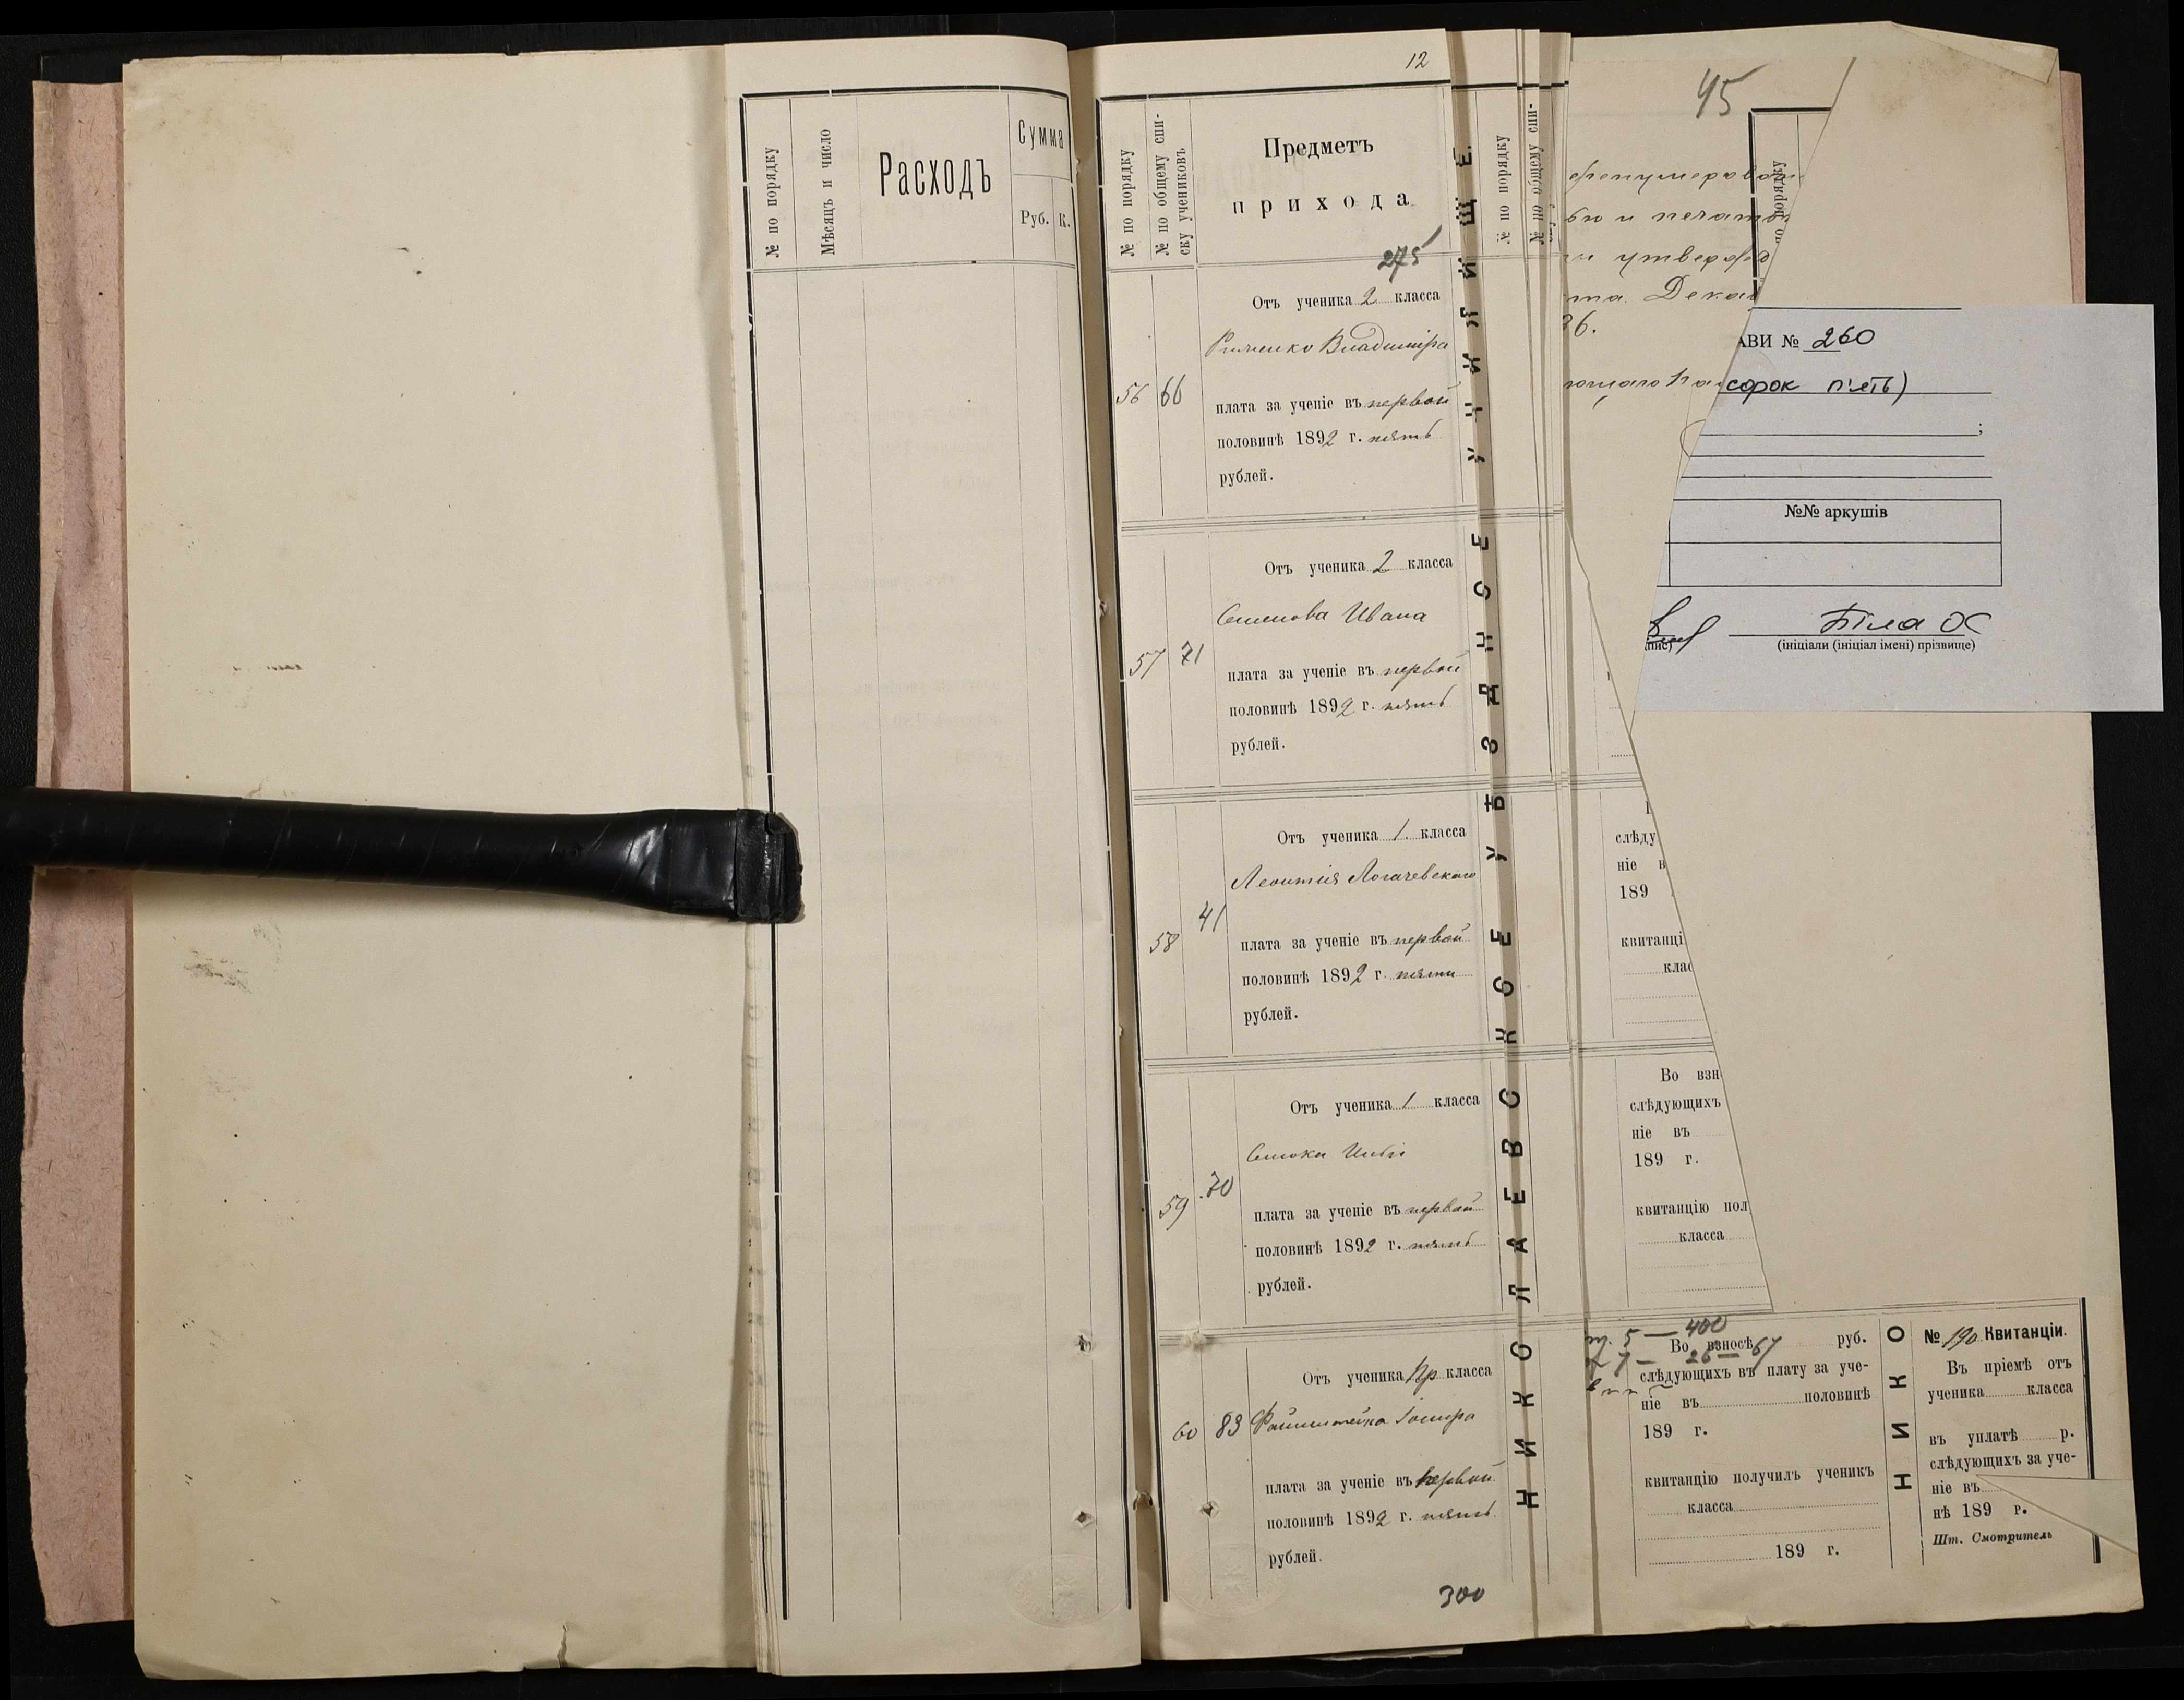 № по порядку
Мѣсяцъ и число
Расходъ
Сумма
Руб. К.
12
№ по порядку
№ по общему спи-
ску учениковъ
Предметъ
прихода
275
Отъ ученика 2 класса
Владиміра
56 66
плата за ученіе въ первой
половинѣ 1892 г. пять
рублей.
Отъ ученика 2 класса
Семенова Ивана
57 71
плата за ученіе въ первой
половинѣ 1892 г. пять
рублей.
Отъ ученика 1 класса
Леонтія Логачевскаго
58 41
плата за ученіе въ первой
половинѣ 1892 г. пяти
рублей.
Отъ ученика 1 класса
59 70
плата за ученіе въ первой
половинѣ 1892 г. пять
рублей.
Отъ ученика Пр класса
60 83
плата за ученіе въ первой
половинѣ 1892 г. пять
рублей.
300
НИКОЛАЕВСКОЕ УѢЗДНОЕ УЧИЛИЩЕ.
№ по порядку
№ по общему спи-
45
по порядку
и печать
утверж
Декаб
АВИ № 260
сорок п'ять)
;
№№ аркушів
Біла
(ініціали (ініціал імені) прізвище)
слѣду
ніе в
189
квитанці
клас
Во взн
слѣдующихъ
ніе въ
189 г.
квитанцію пол
класса
5 — 400
Во взносѣ руб.
слѣдующихъ въ плату за уче-
ніе въ половинѣ
189 г.
квитанцію получилъ ученикъ
класса
189 г.
НИКО
№ 190 Квитанціи.
Въ пріемѣ отъ
ученика класса
въ уплатѣ р.
слѣдующихъ за уче-
ніе въ
нѣ 189 г.
Шт. Смотритель